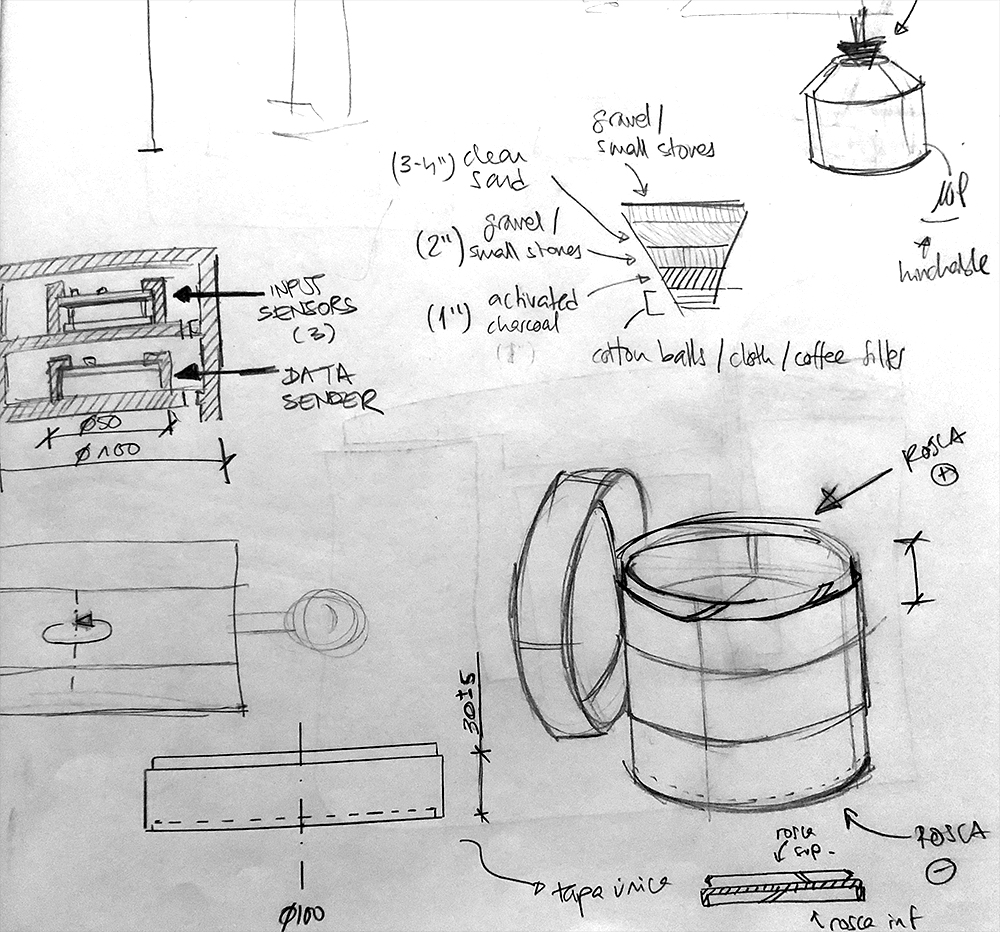 gravel/
small stones
(3-4") clean
sand
gravel/
(2") small stones
(1") activated
charcoal
(1")
cotton balls / cloth / coffee filter
hinchable
INPUT
SENSORS
(3)
DATA
SENDER
Ø50
Ø100
ROSCA
+
30±5
Ø100
tapa única
rosca
sup.
rosca inf
ROSCA
-